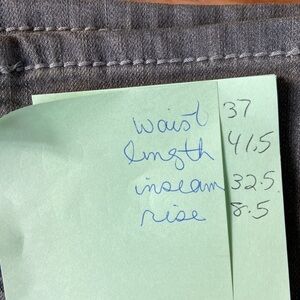 waist 37
length 41.5
inseam 32.5
rise 8.5